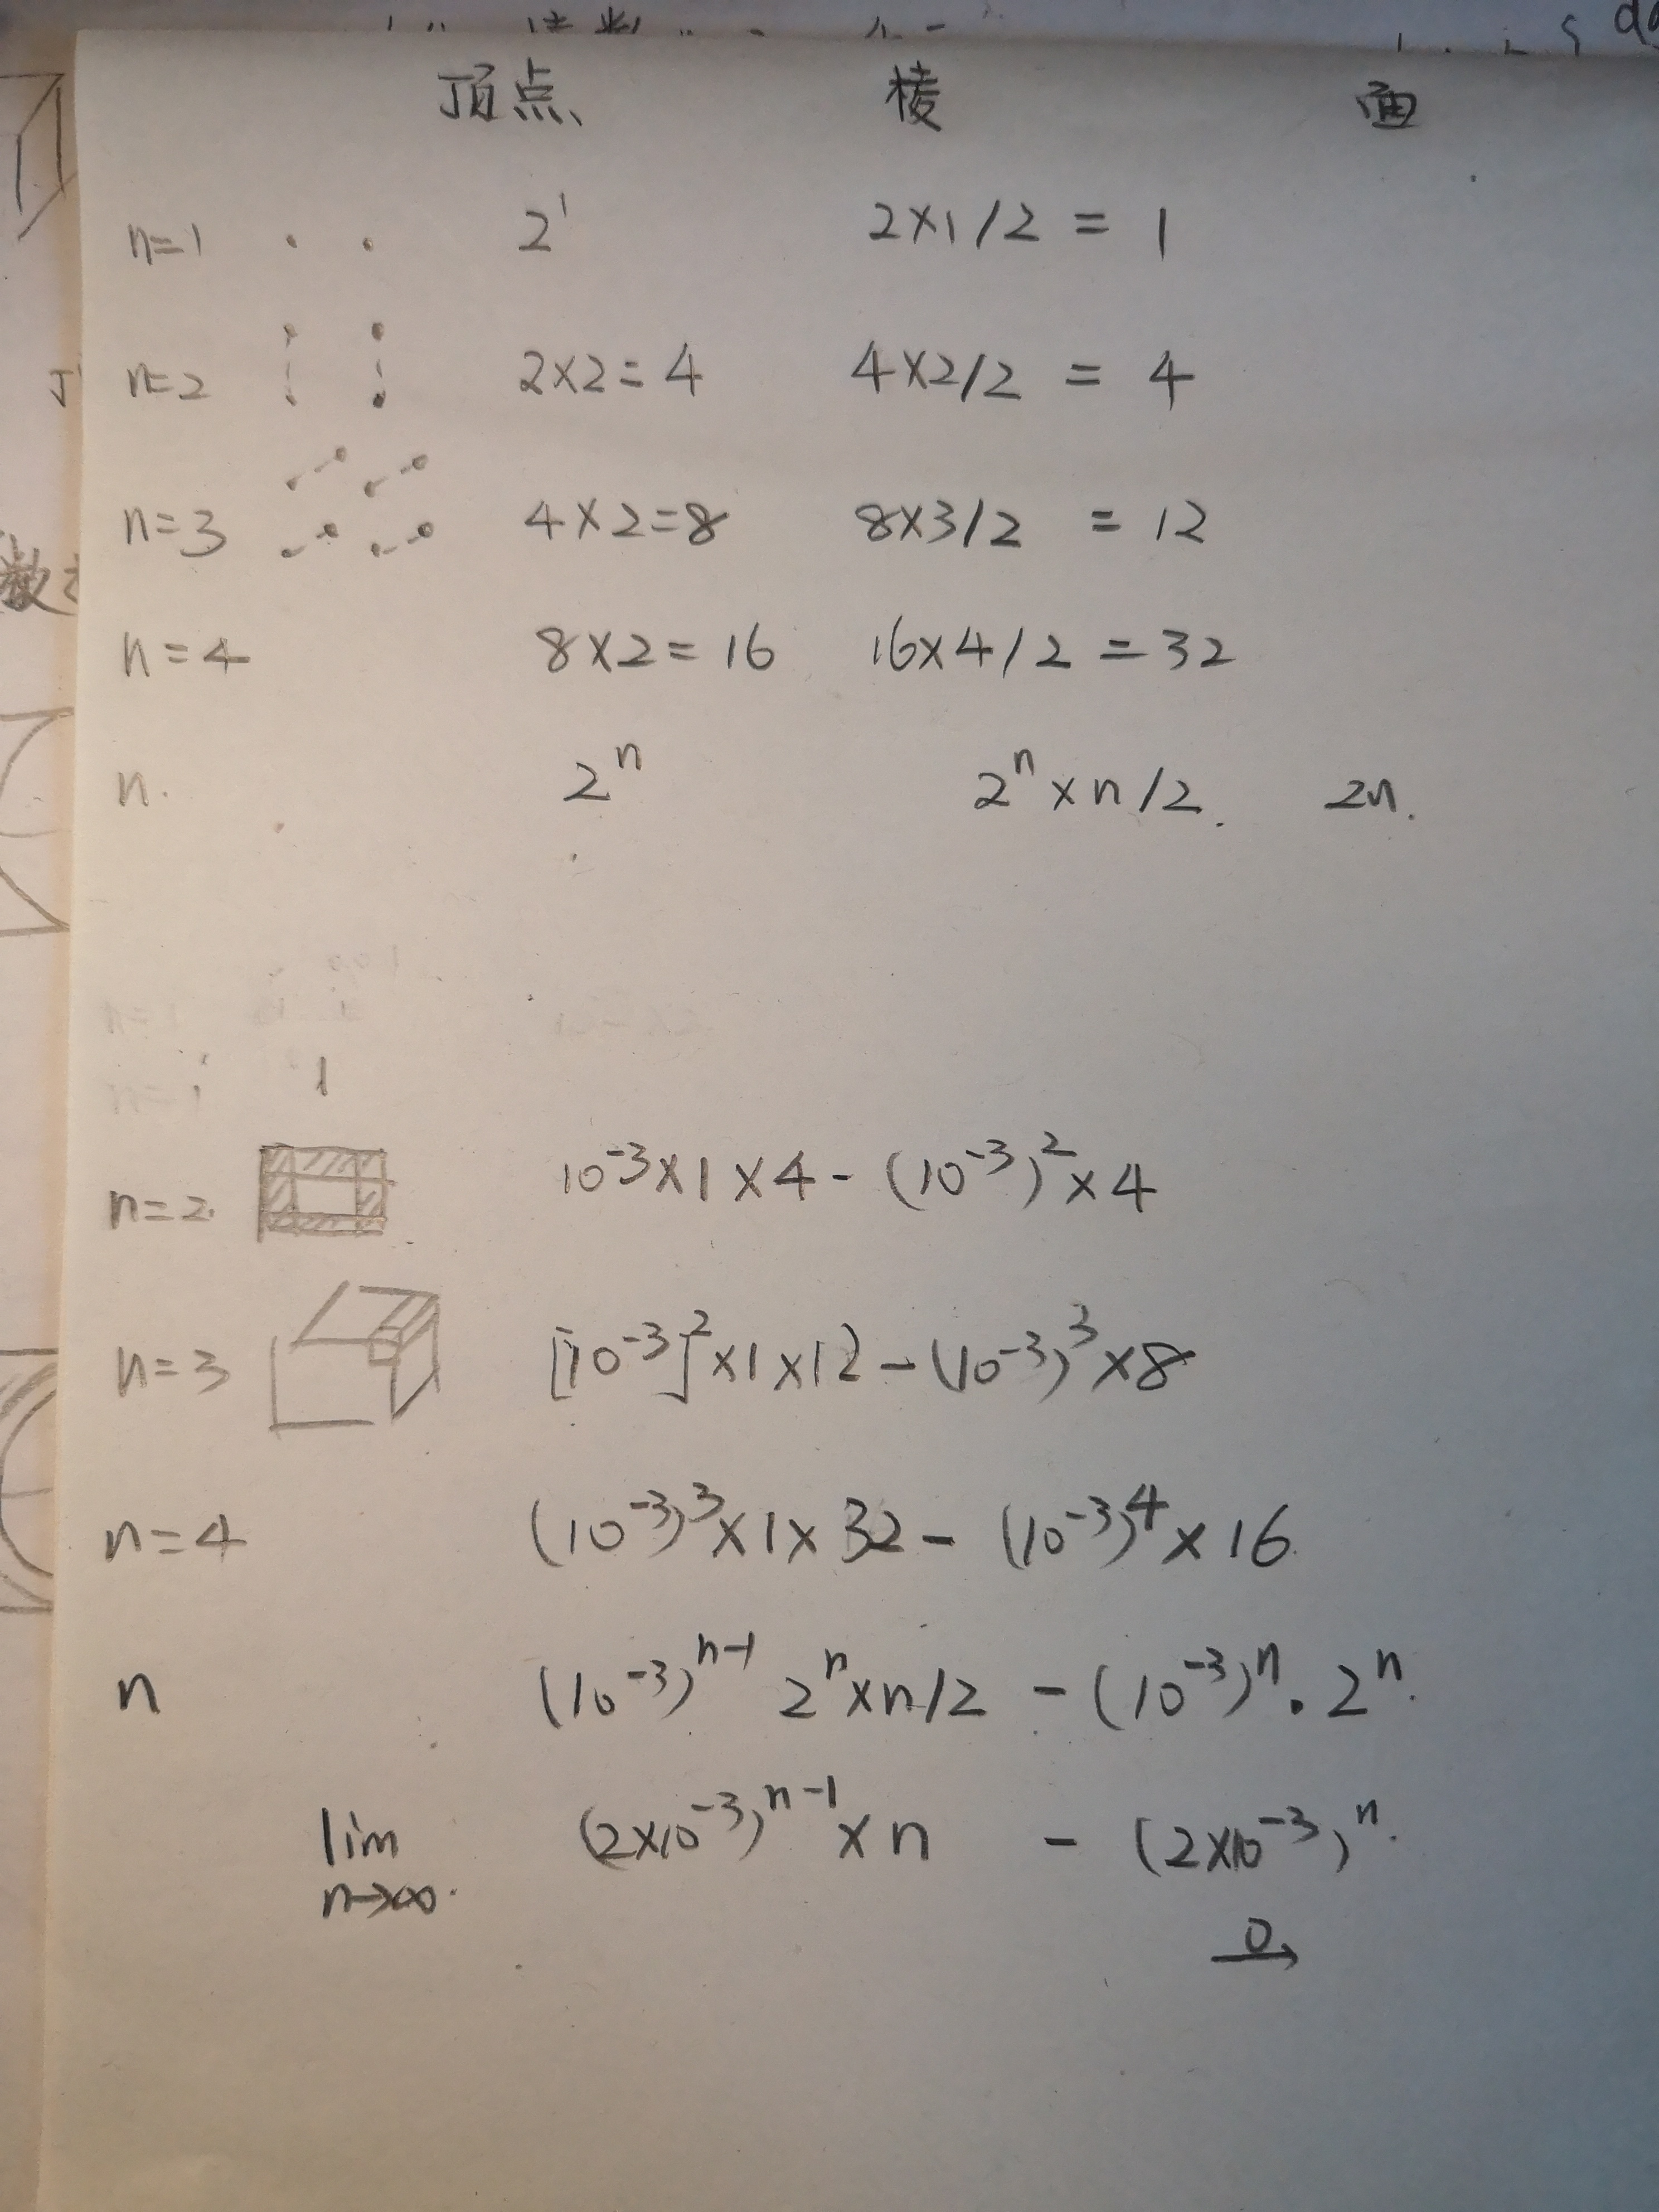 顶点 棱 面
n=1 2¹ 2×1/2 = 1
n=2 2×2=4 4×2/2 = 4
n=3 4×2=8 8×3/2 = 12
n=4 8×2=16 16×4/2 = 32
n. 2ⁿ 2ⁿ×n/2. 2n.
1
n=2. 10⁻³×1×4-(10⁻³)²×4
n=3 [10⁻³]²×1×12-(10⁻³)³×8
n=4 (10⁻³)³×1×32-(10⁻³)⁴×16.
n (10⁻³)ⁿ⁻¹ 2ⁿ×n/2 - (10⁻³)ⁿ·2ⁿ.
lim (2×10⁻³)ⁿ⁻¹×n - (2×10⁻³)ⁿ.
n→∞.
0
→
数